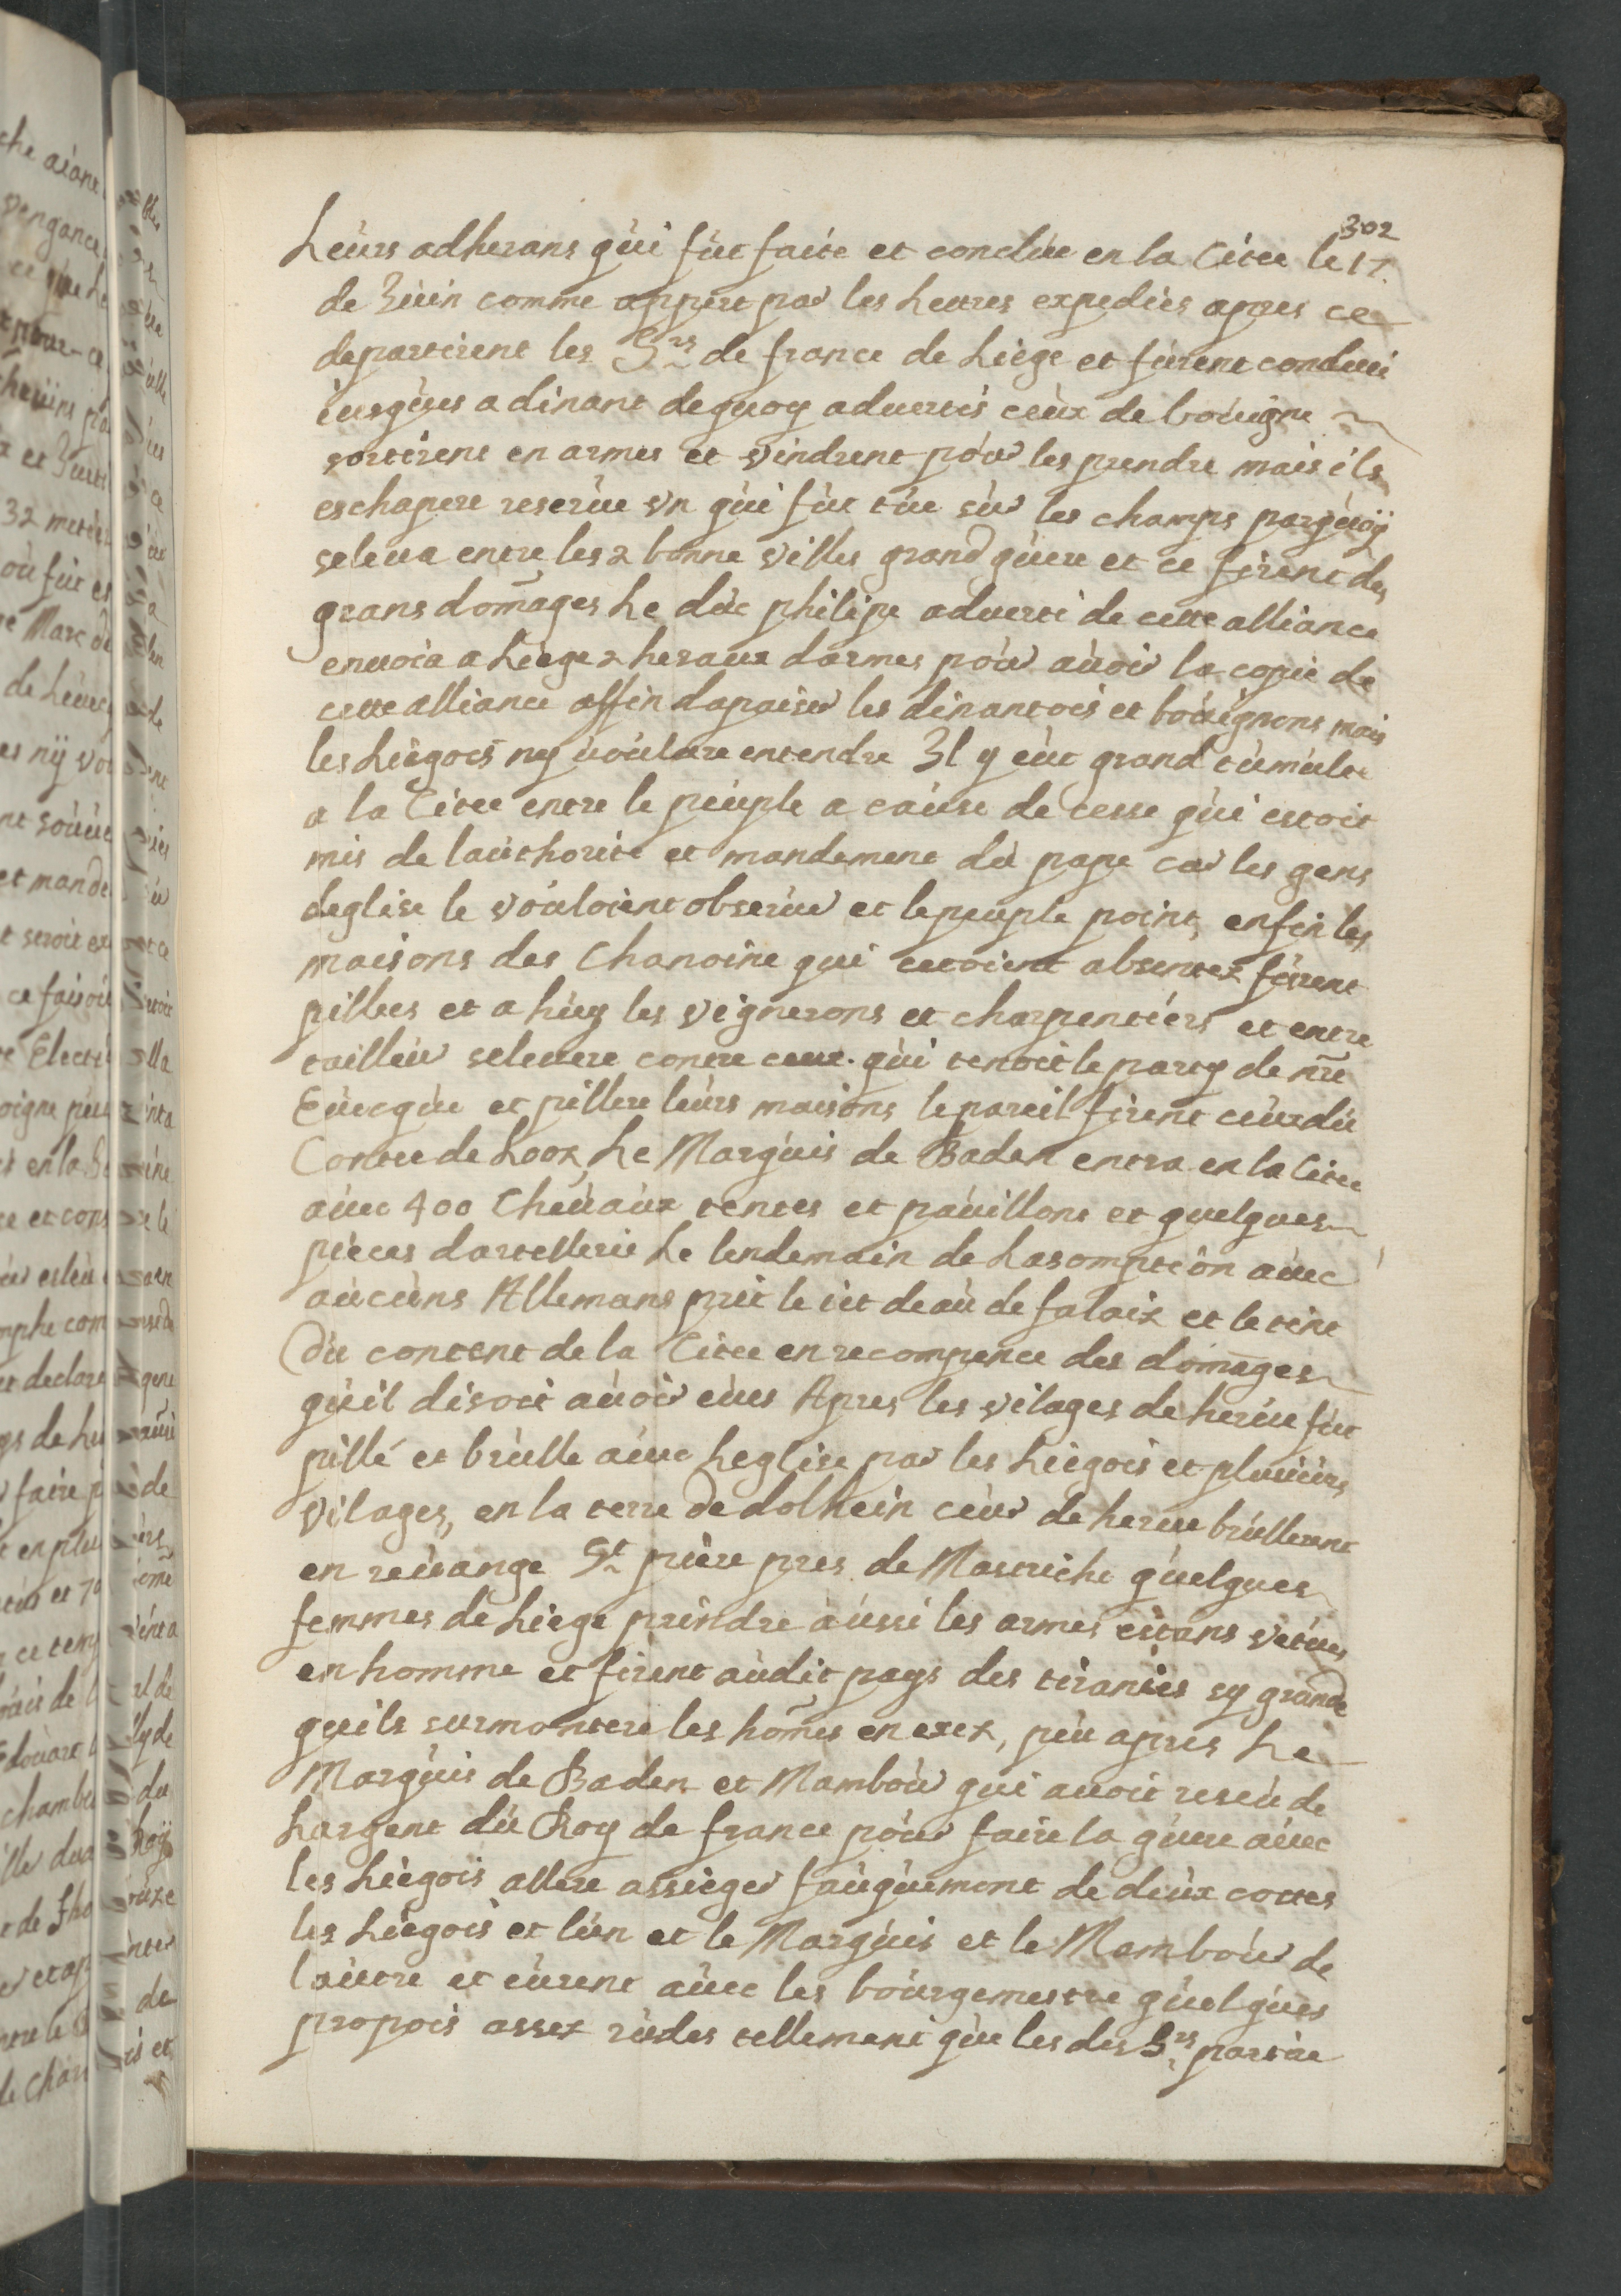 302
Leùrs adherans qùi fùt faite et conclùe en la Citee le 17.
de Juin comme appert par les Lettres expediés apres ce
departirent les Srs de france de Liège et fùrent conduit
iusqùes a dinant dequoy advertis ceùx de boùigne
sortirent en armes et vindrent poùr les prendre mais ils
eschapere reserùe vn qùi fùt tùe sùr les champs parqùoÿ
seleua entre les 2 bonne villes grand gùere et ce firent des
grans dom̃ages Le dùc philipe adverti de cette alliance
enuoia a Liège 2 heraux darmes poùr aùoir la copie de
cette alliance affin dapaiser les dinantois et boùignons mais
les Liègois ny voùlure entendre Il y eùt grand tùmùlte
a la Citee entre le peùple a caùse de cesse qùi estoit
mis de laùthorité et mandement dù pape car les gens
deglise le voùloient obserùer et le peuple point, enfin les
maisons des Chanoine qui estoient absentez fùrent
pillées et a hùy les vignerons et charpentiérs et entre
tailleùr seleuere contre ceux qùi tenoit le party de nr̃e
Eùecqùe et pillere leùrs maisons le pareil firent ceùx dù
Contee de Looz Le Marqùis de Baden entra en la Citee
aùec 400 Cheùaùx tentes et paùillons et quelques
piéces dartellerie Le lendemain de Lasomptiòn aùec
aùcùns Allemans prit le dit deaù de falaix et le tint
Dù content de la Citee en recompence des dom̃ages
qùil disoit aùoir eùes Apres les vilages de herùe fùt
pillé et brùlle aùec Leglise par les Liègois et plusieùrs
vilages, en la terre de dolhein ceùx de herùe brùllerent
en reùange St pière pres de Mastriche qùelques
femmes de Liège prindre aùssi les armes estans vetùes
en homme et firent aùdit pays des tiraniés sy grande
qùils surmontere les hom̃es en exez, peù apres Le
Marqùis de Baden et Mamboùr qui auoit reseù de
Largent dù Roy de france poùr faire la gùere aùec
les Liègois allere assièger faùqùemont de deùx cottes
les Liègois et lùn et le Marqùis et le Mamboùr de
laùtre et eùrent aùec les boùrgemestre qùelqùes
propois assez rùdes tellement qùe les dis Srs partie